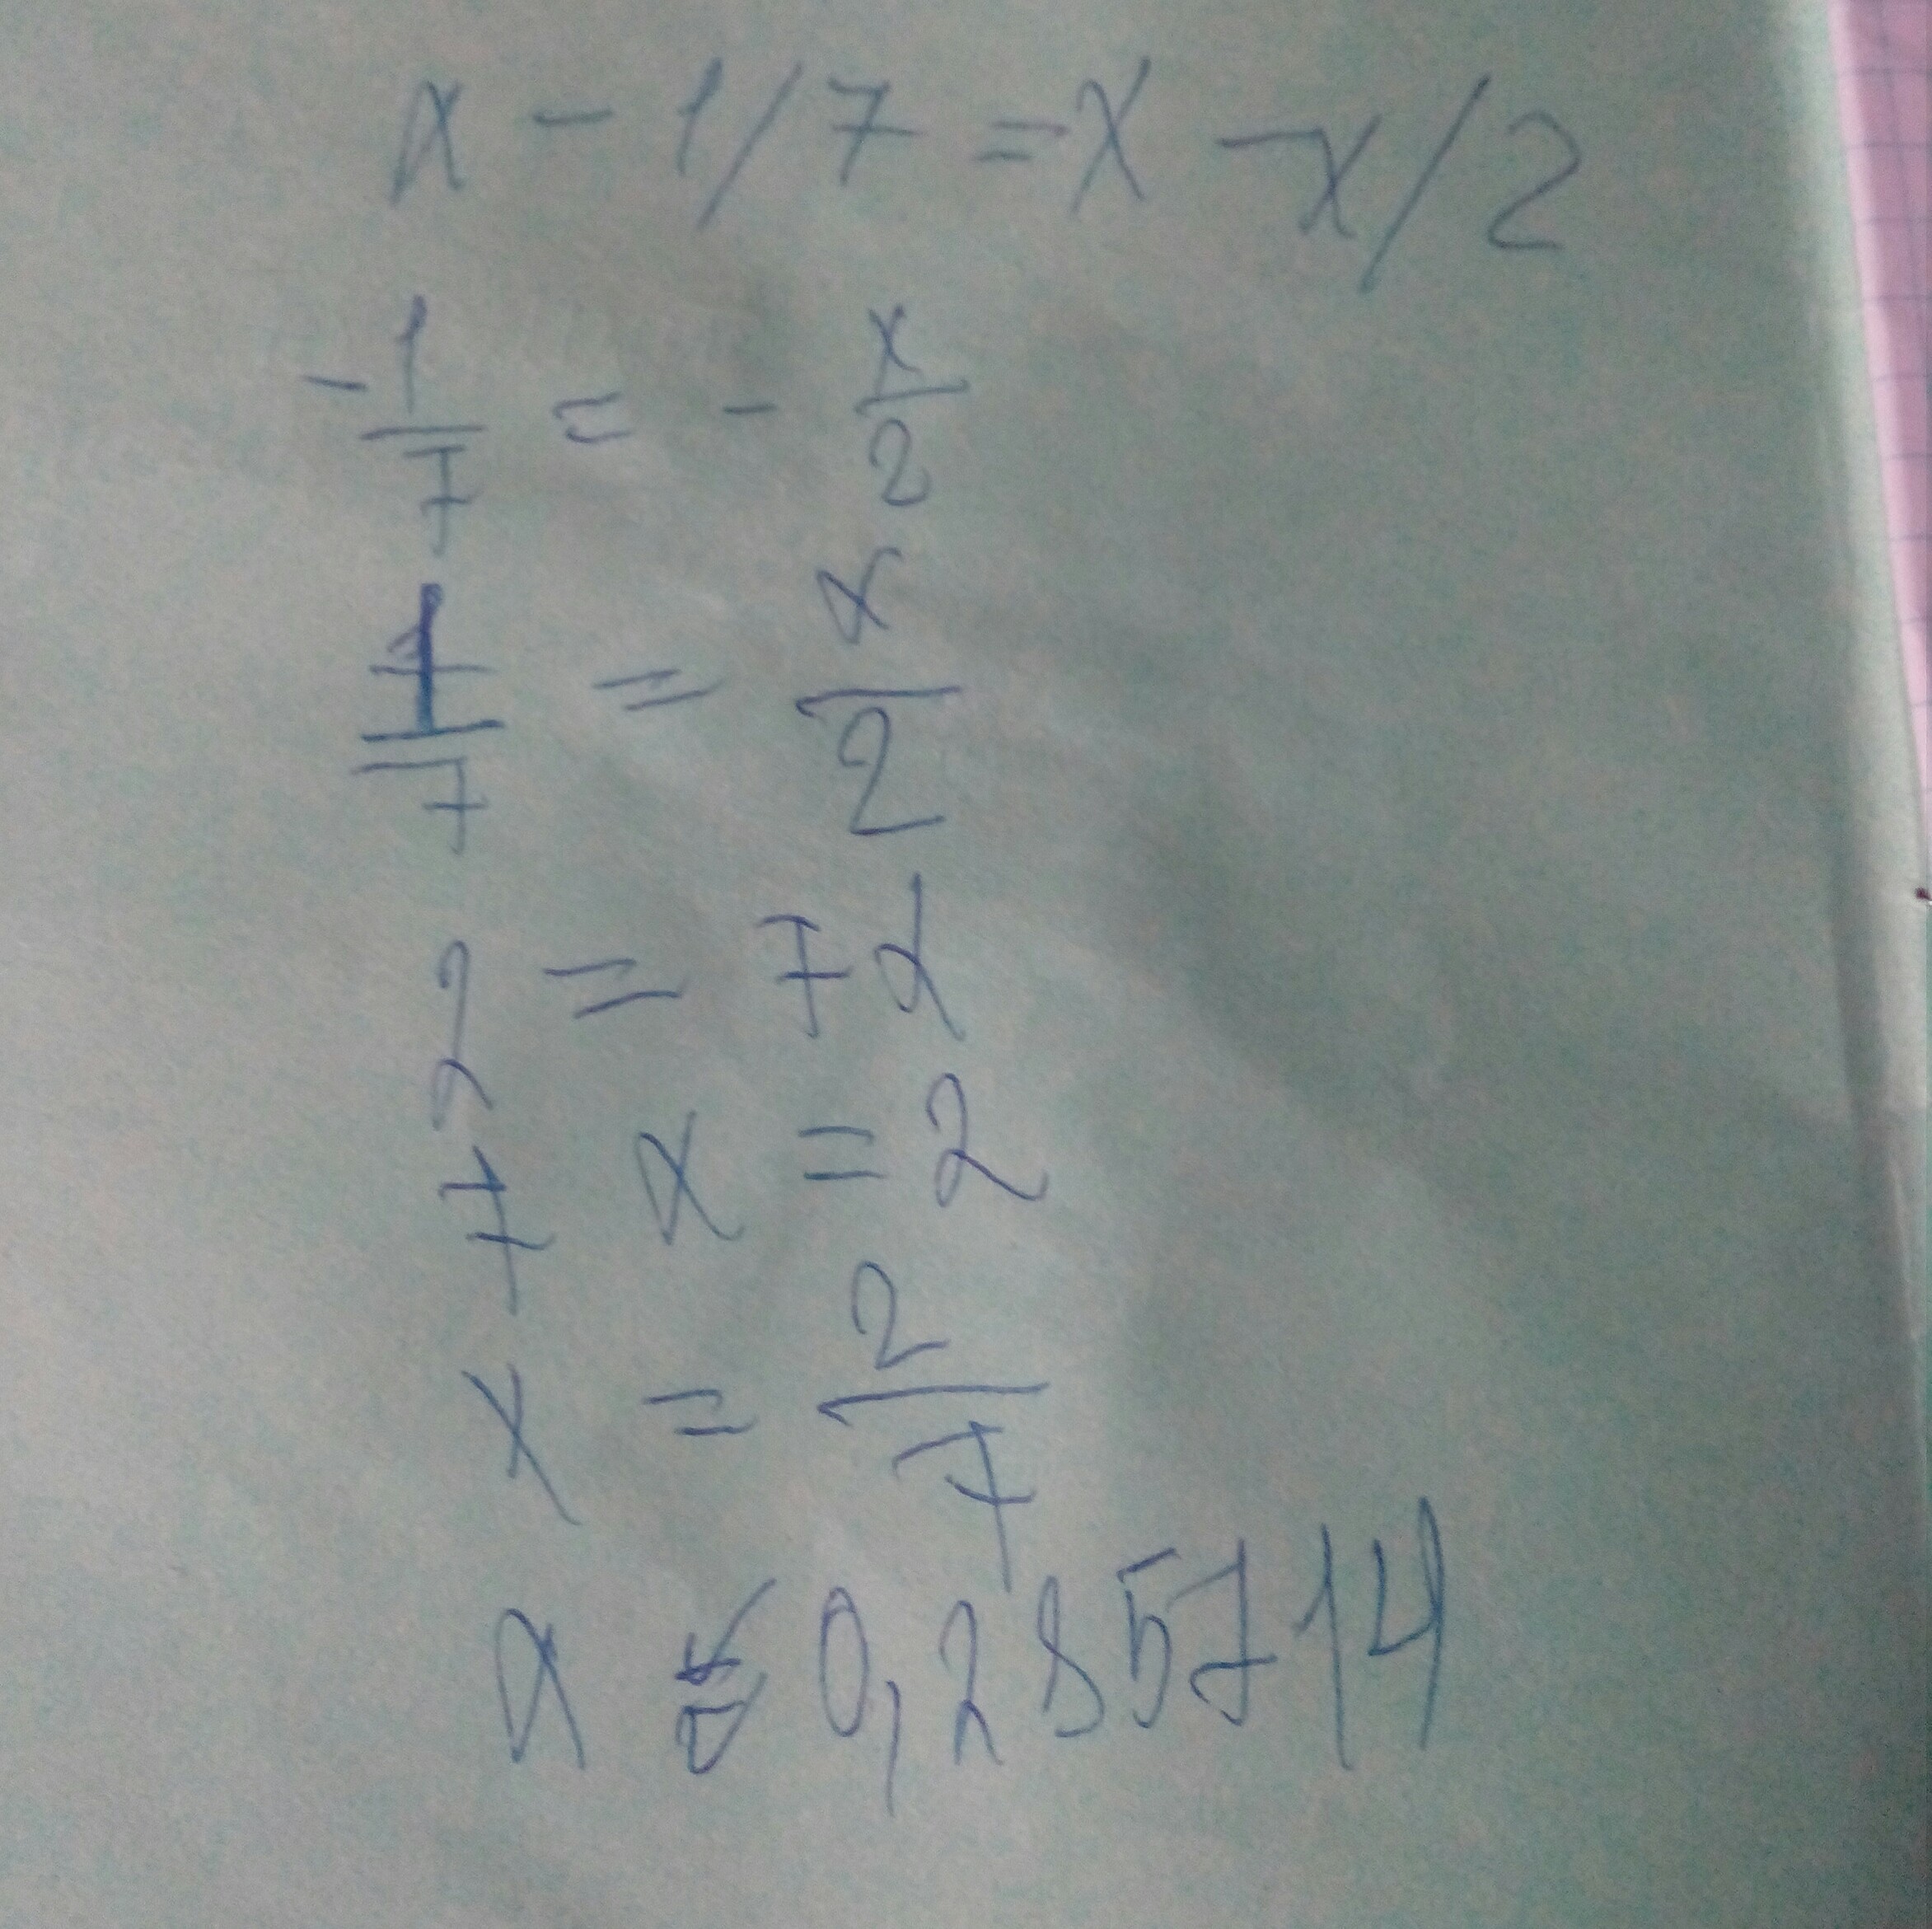 x - 1/7 = x - x/2
-1/7 = - x/2
1/7 = x/2
2 = 7x
7x = 2
x = 2/7
x ≈ 0,285714